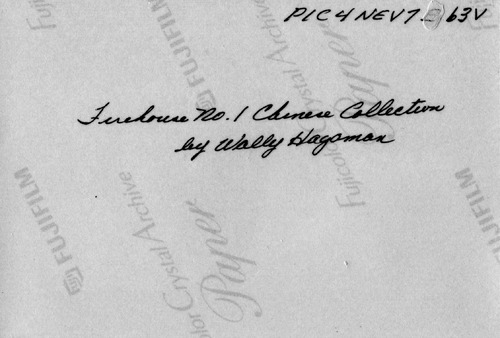 PIC 4 NEV 7 63V
Firehouse No. 1 Chinese Collection
by Wally Hagaman
FUJIFILM
Fujicolor Crystal Archive
Paper
FUJIFILM
Fujicolor Crystal Archive
Paper
FUJIFILM
color Crystal Archive
Paper
FUJIFILM